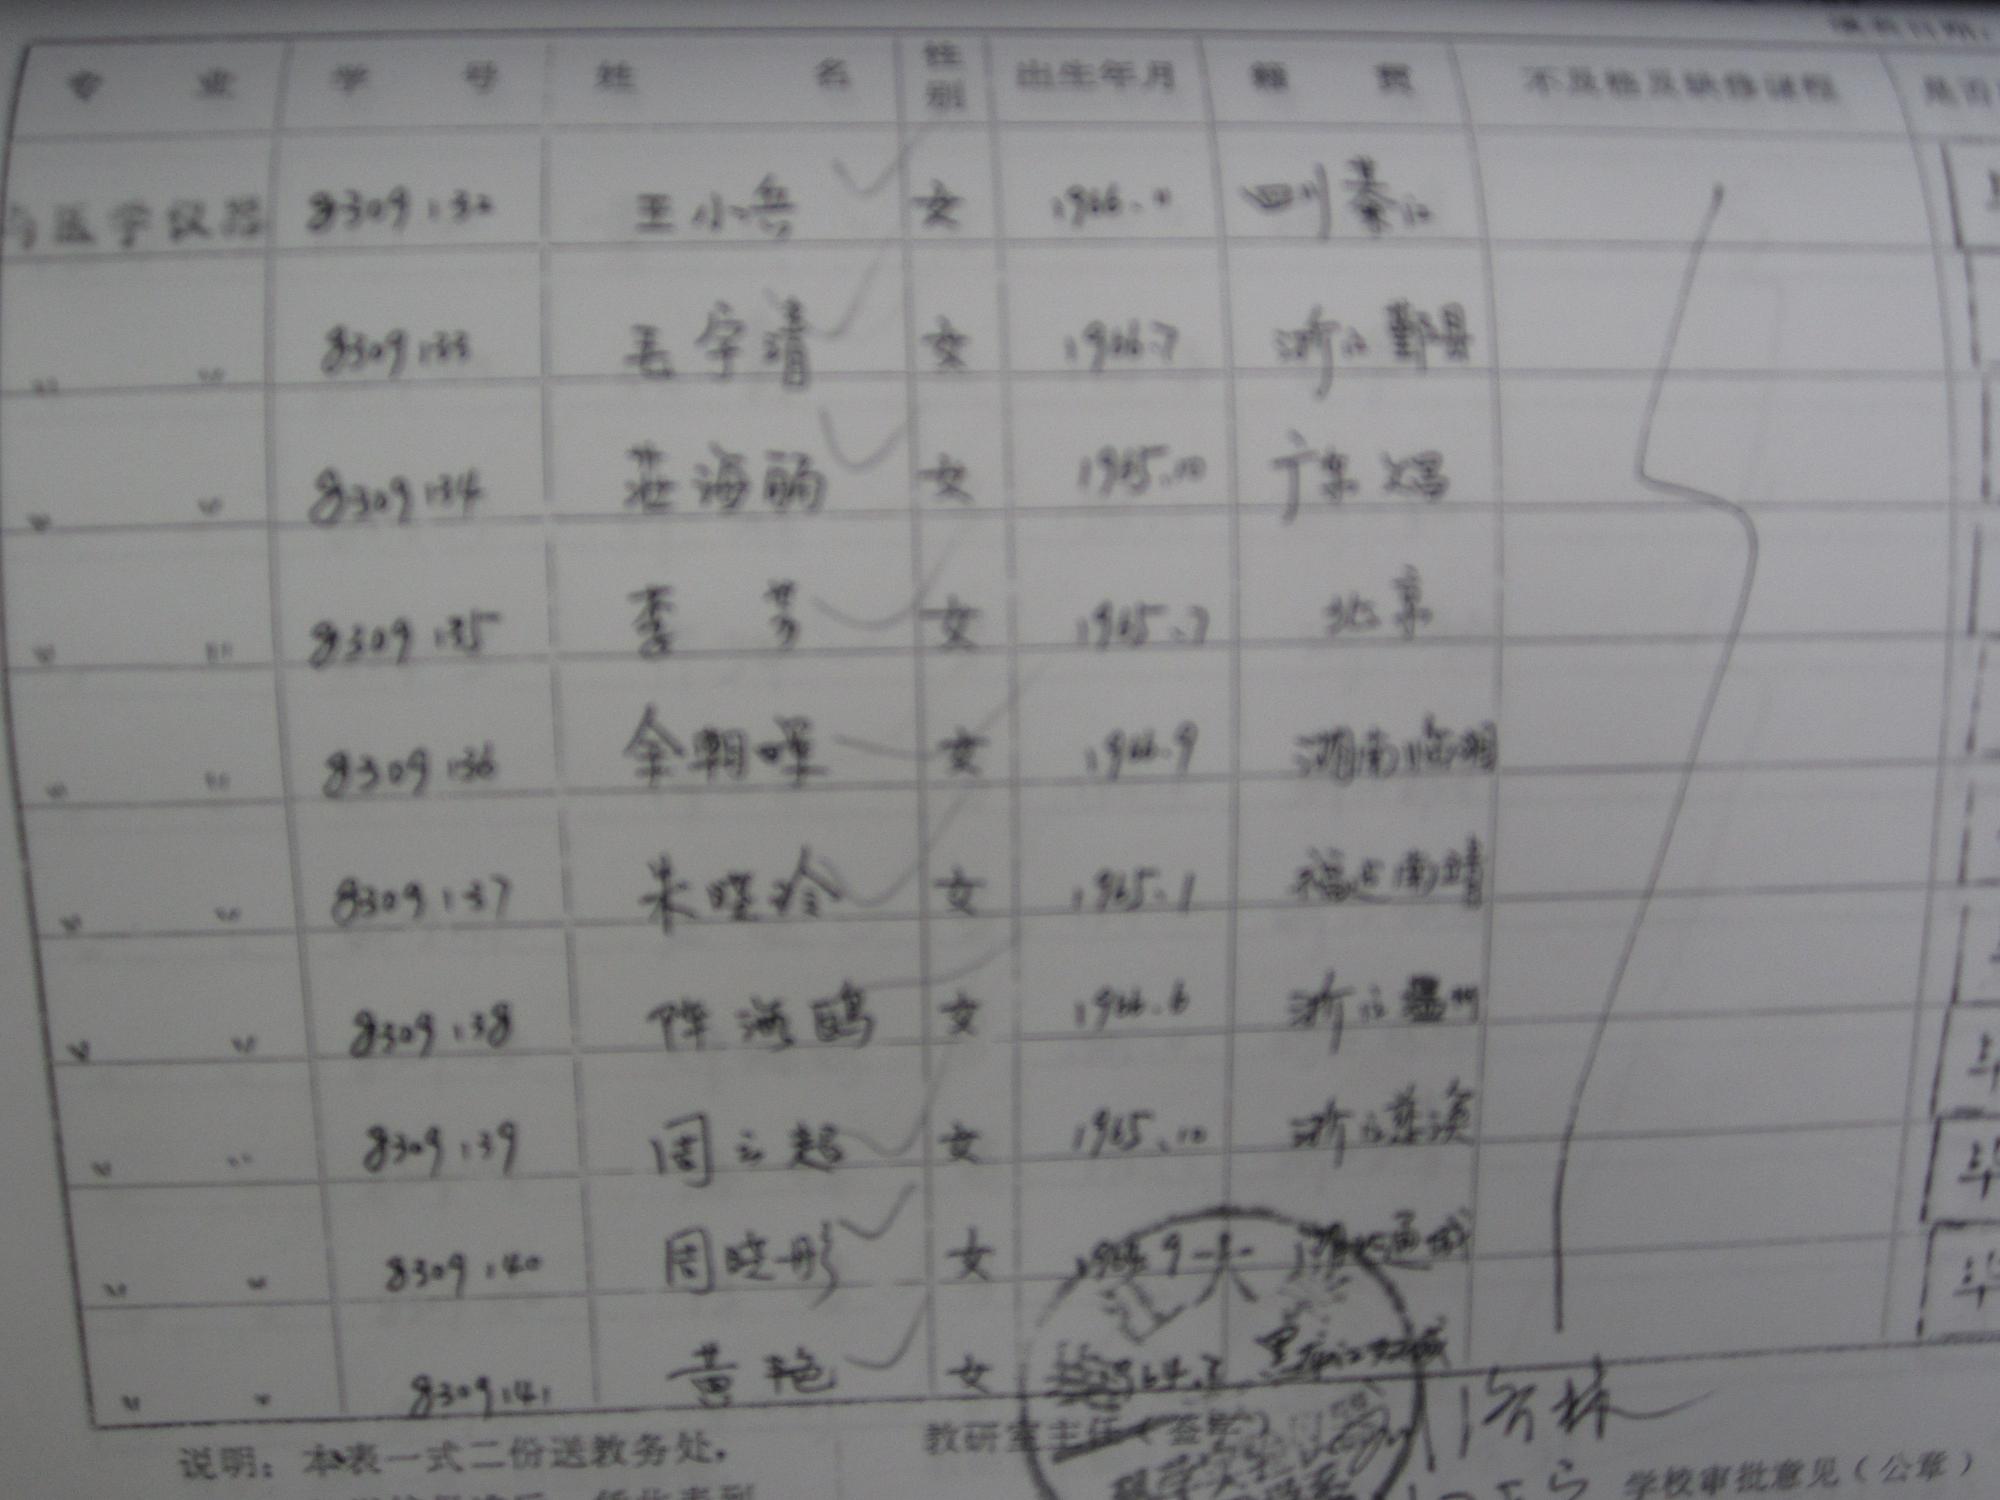 专业 学号 姓名 性别 出生年月 籍贯 不及格及缺修课程 是否
与医学仪器 8309132 王小兵 女 1966. 四川綦江
〃 〃 8309133 毛宇清 女 1966.7 浙江鄞县
〃 〃 8309134 莊海鹂 女 1965.10 广东文昌
〃 〃 8309135 李芳 女 1965.7 北京
〃 〃 8309136 余朝晖 女 1966.9 湖南临湘
〃 〃 8309137 朱晓玲 女 1965.1 福建南靖
〃 〃 8309138 陈海鸥 女 1966.6 浙江温州
〃 〃 8309139 周云超 女 1965.10 浙江慈溪
〃 〃 8309140 周晓彤 女 9 湖北通城
〃 〃 8309141 黄艳 女 黑龙江双城
说明：本表一式二份送教务处， 教研室主任（签字）
学校审批意见（公章）